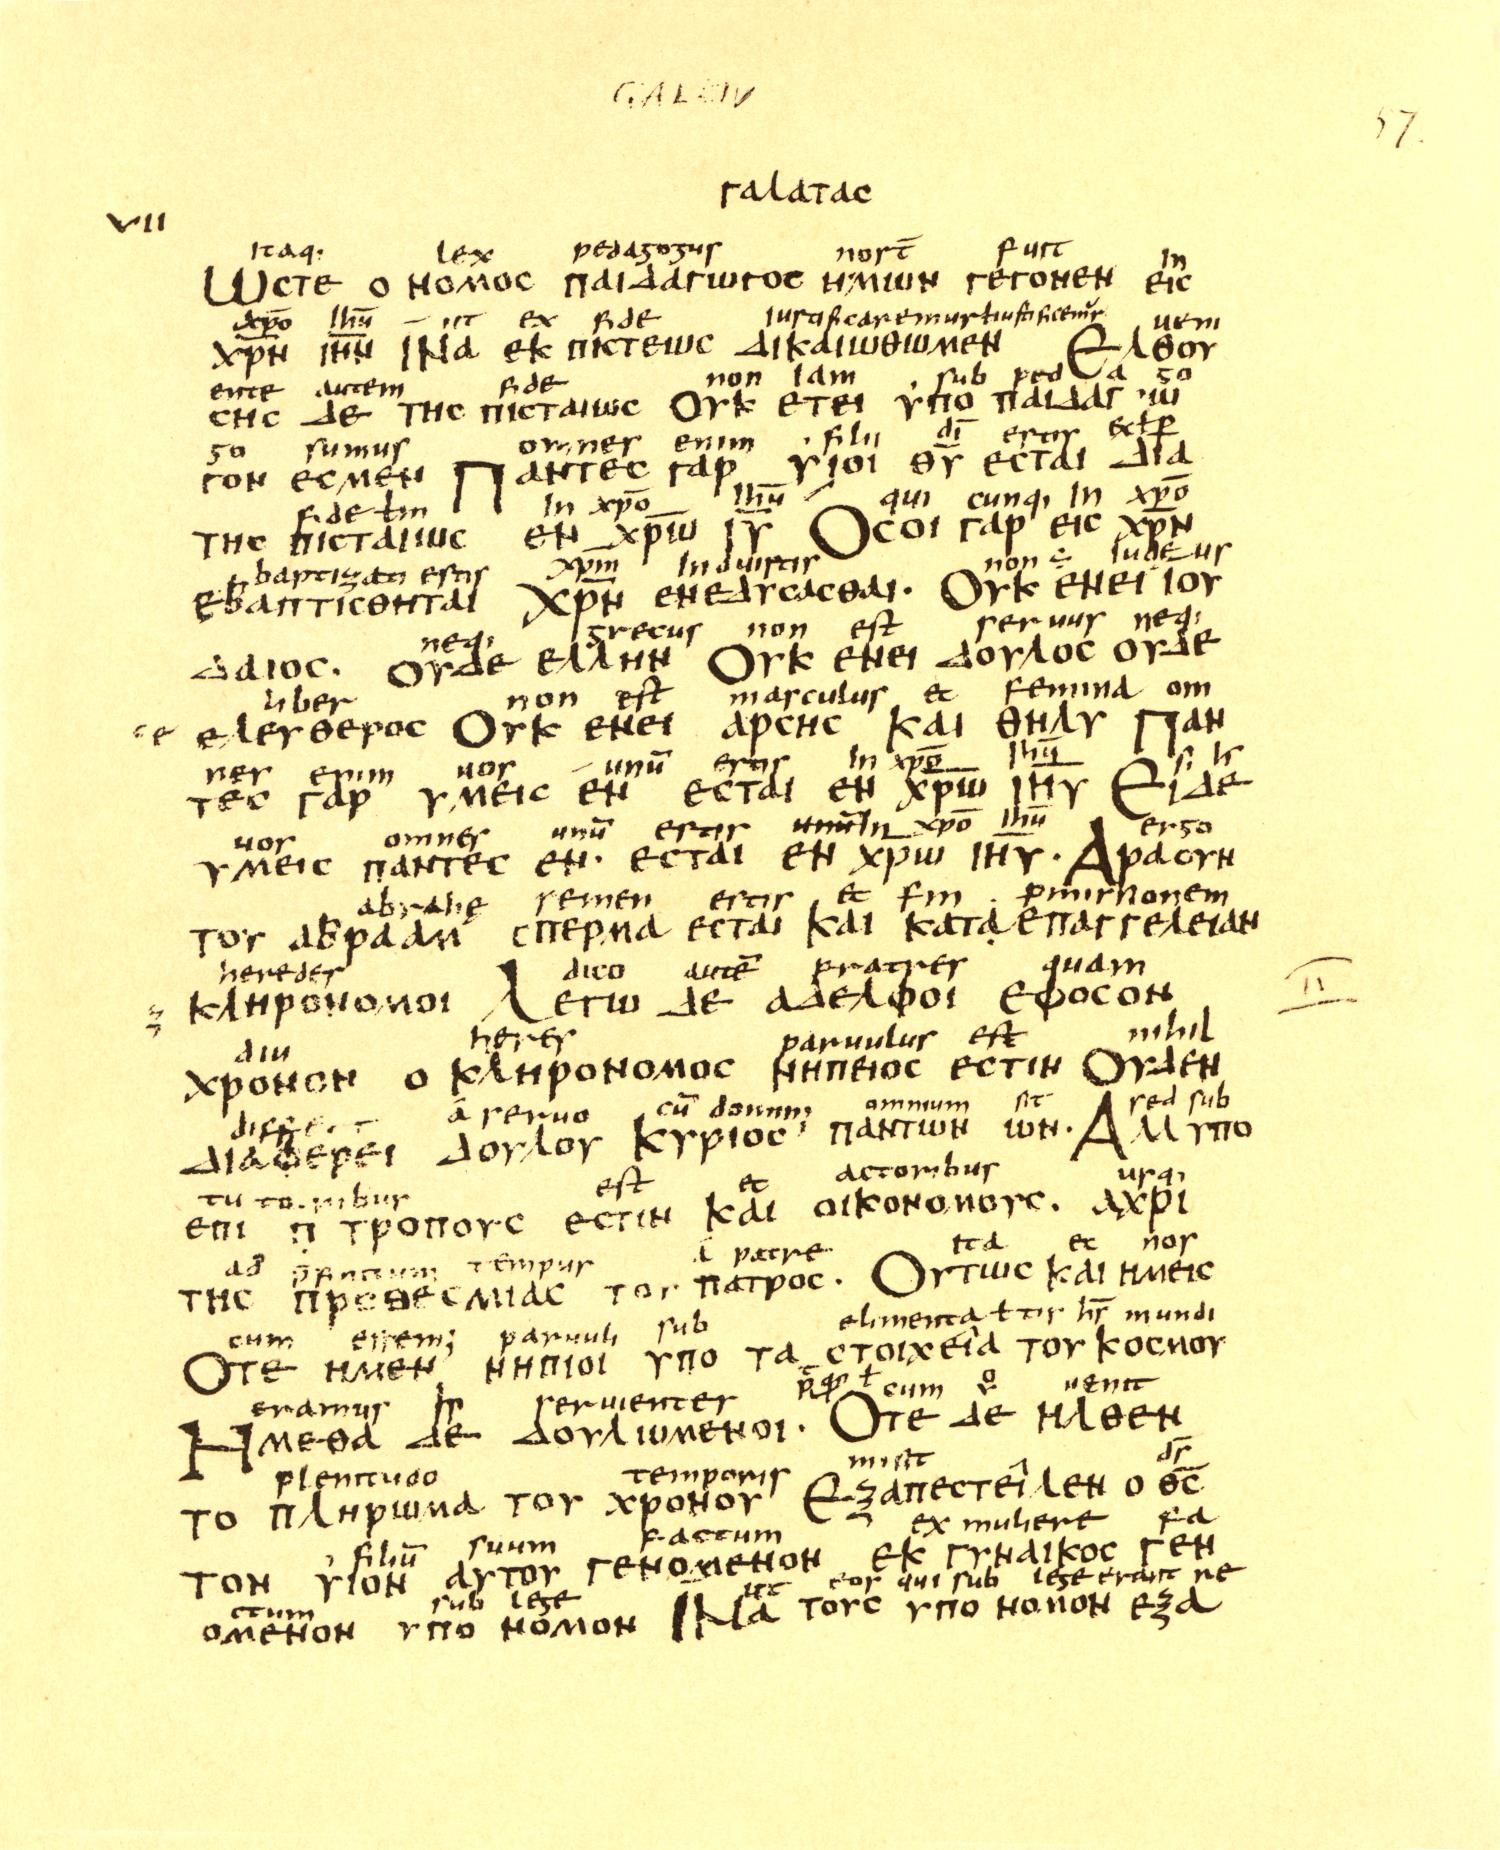 GAL
57.
γαλατας
VII
itaq; lex pedagogus nost̄ fuit in
Ωστε ο νομος παιδαγωγος ημων γεγονεν εις
xp̄o ihū ut ex fide iustificaremur
χρ̄ν ιην̄ ινα εκ πιστεως δικαιωθωμεν Ελθου
ente autem fide non iam sub ped a go
σης δε της πισταιως Ουκ ετει υπο παιδαγω
go sumus omnes enim filii dī estis
γον εσμεν Παντες γαρ υιοι θῡ εσται δια
fidē in xp̄o ihū qui cunq; in xp̄o
της πισταιως εν χρ̄ω ιῡ Οσοι γαρ εις χρ̄ν
baptizati estis xp̄m induistis non ē iudeus
εβαπτισθηται χρ̄ν ενεδυσασθαι. Ουκ ενει ιου
neq; grecus non est servus neq;
δαιος. ουδε ελλην Ουκ ενει δουλος ουδε
liber non est masculus et femina om
ελευθερος Ουκ ενει αρσης και θηλυ Παν
nes enim vos unū estis in xp̄o ihū si
τες γαρ υμεις εν εσται εν χρ̄ω ιηῡ Ει δε
vos omnes unū estis unū in xp̄o ihū ergo
υμεις παντες εν. εσται εν χρω ιηῡ. Αρα ουν
abrahę semen estis et
του αβρααμ σπερμα εσται και κατα επαγγελειαν
heredes dico autē fratres quam
κληρονομοι Λεγω δε αδελφοι εφοσον
II
diu heres parvulus est nihil
χρονον ο κληρονομος νηπειος εστιν Ουδεν
a servo cū omnium sit sed sub
διαφερει δουλου Κυριος παντων ων. Αλλ υπο
est et actoribus usq;
επι π τροπους εστιν και οικονομους. αχρι
ad tempus a patre ita et nos
της προθεσμιας του πατρος. Ουτως και ημεις
cum essem; parvuli sub elimenta mundi
Οτε ημεν νηπιοι υπο τα στοιχεια του κοσμου
eramus servientes cum venit
Ημεθα δε δουλωμενοι. Οτε δε ηλθεν
plenitudo temporis misit ds̄
το πληρωμα του χρονου Εξαπεστειλεν ο θς̄
filiū suum factum ex muliere fa
τον υιον αυτου γενομενον εκ γυναικος γεν
ctum sub lege ut eos qui sub lege erant re
ομενον υπο νομον ινα τους υπο νομον εξα